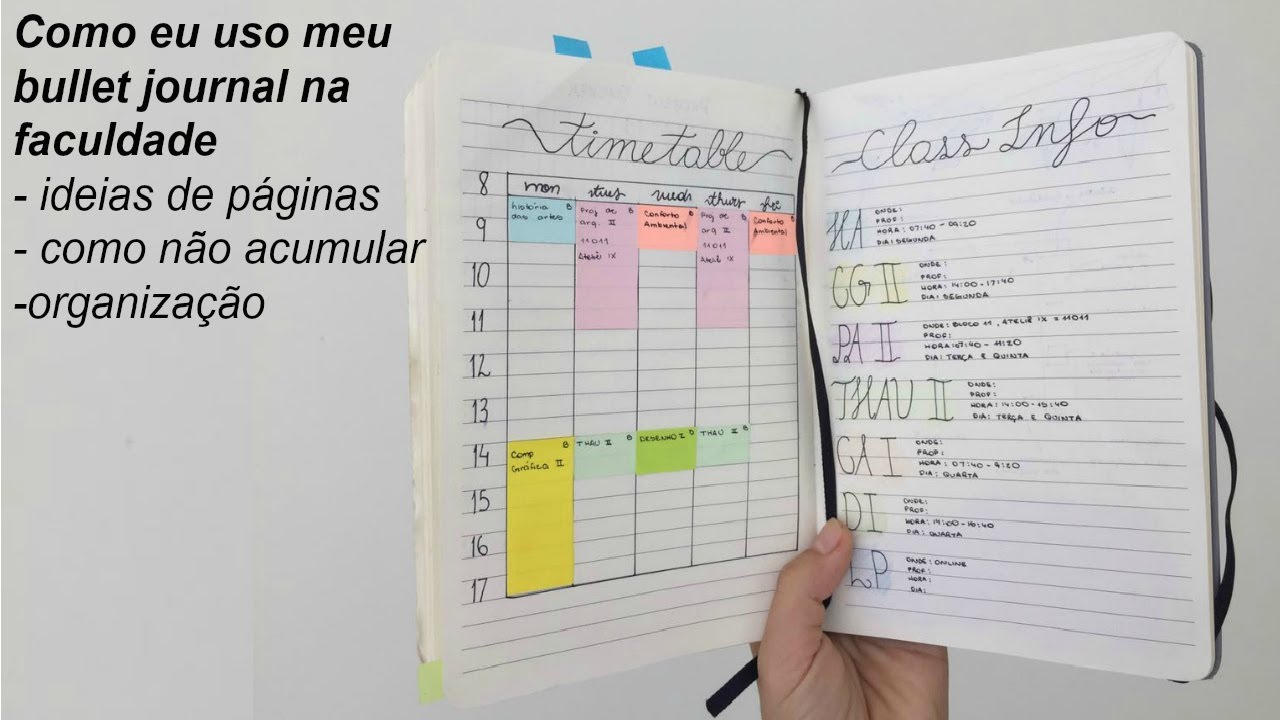 Como eu uso meu
bullet journal na
faculdade
- ideias de páginas
- como não acumular
-organização
timetable
8
mon tues weds thurs fri
história
das artes B
Proj de B
arq. II
11011
Ateliê IX
Conforto B
Ambiental
Proj de B
arq II
11011
Ateliê IX
Conforto B
Ambiental
9
10
11
12
13
14
Comp B
Gráfica II
THAU II B
DESENHO I D
THAU II B
15
16
17
Class Info
HA
ONDE:
PROF:
HORA: 07:40 - 09:20
DIA: SEGUNDA
CG II
ONDE:
PROF:
HORA: 14:00 - 17:40
DIA: SEGUNDA
PA II
ONDE: BLOCO 11, ATELIÊ IX = 11011
PROF:
HORA: 07:40 - 11:20
DIA: TERÇA E QUINTA
THAU II
ONDE:
PROF:
HORA: 14:00 - 15:40
DIA: TERÇA E QUINTA
CA I
ONDE:
PROF:
HORA: 07:40 - 9:20
DIA: QUARTA
DI
ONDE:
PROF:
HORA: 14:00 - 15:40
DIA: QUARTA
LP
ONDE: ONLINE
PROF:
HORA:
DIA: